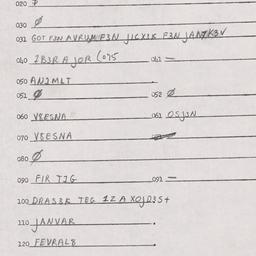 020 Ø
030 Ø
031 GOT F3N AVRUM F3N JICX3K F3N
040 2B3R A JOR (075 041 —
050 AN2MLT
051 Ø 052 Ø
060 V8ESNA 061 OSJ3N
070 V8ESNA
080 Ø
090 FIR TIG 091 —
100 DRAS3K TEG 1Z A XOJD35+
110 JANVAR
120 FEVRAL8